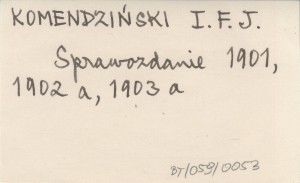 KOMENDZIŃSKI I.F.J.
Sprawozdanie 1901,
1902 a, 1903 a
BT/059/0053